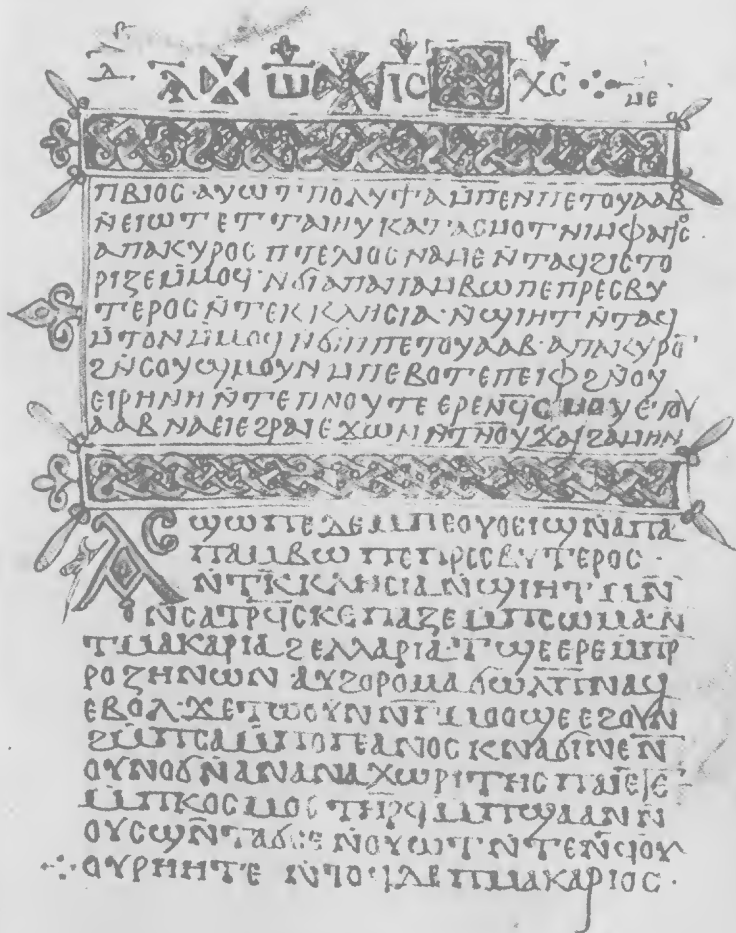 ⲁ ⲱ ⲓ̅ⲥ̅ ⲭ̅ⲥ̅
ⲡⲃⲓⲟⲥ· ⲁⲩⲱ ⲧⲡⲟⲗⲩⲧⲓⲁ ⲙ̄ⲡⲉⲛⲡⲉⲧⲟⲩⲁⲁⲃ
ⲛ̄ⲉⲓⲱⲧ ⲉⲧⲧⲁⲓⲏⲩ ⲕⲁⲧⲁ ⲥⲙⲟⲧ ⲛⲓⲙ
ⲁⲡⲁ ⲕⲩⲣⲟⲥ ⲡⲧⲉⲗⲓⲟⲥ ⲛⲁⲙⲉ ⲛ̄ⲧⲁϥϩⲓⲥⲧⲟ
ⲣⲓⲍⲉ ⲙ̄ⲙⲟϥ· ⲛ̄ϭⲓ ⲁⲡⲁ ⲡⲁⲙⲃⲱ ⲡⲉⲡⲣⲉⲥⲃⲩ
ⲧⲉⲣⲟⲥ ⲛ̄ⲧⲉⲕⲕⲗⲏⲥⲓⲁ· ⲛ̄ϣⲓⲏⲧ ⲛ̄ⲧⲁϥ
ⲙ̄ⲧⲟⲛ ⲙ̄ⲙⲟϥ ⲛ̄ϭⲓ ⲡⲡⲉⲧⲟⲩⲁⲁⲃ· ⲁⲡⲁ ⲕⲩⲣⲟⲥ
ϩⲛ̄ ⲥⲟⲩ ϣⲙⲟⲩⲛ ⲙ̄ⲡⲉⲃⲟⲧ ⲉⲡⲉⲓⲫ ϩⲛ̄ ⲟⲩ
ⲉⲓⲣⲏⲛⲏ ⲛ̄ⲧⲉ ⲡⲛⲟⲩⲧⲉ ⲉⲣⲉ ⲛⲉϥⲥⲙⲟⲩ ⲉⲧⲟⲩ
ⲁⲁⲃ ⲛⲁⲉⲓ ⲉϩⲣⲁⲓ ⲉϫⲱⲛ ϩⲁⲙⲏⲛ
ⲁⲥϣⲱⲡⲉ ⲇⲉ ⲙ̄ⲡⲉⲟⲩⲟⲉⲓϣ ⲛ̄ⲁⲡⲁ
ⲡⲁⲙⲃⲱ ⲡⲉⲡⲣⲉⲥⲃⲩⲧⲉⲣⲟⲥ·
ⲛ̄ⲧⲕ̄ⲕⲗⲏⲥⲓⲁ ⲛ̄ϣⲓⲏⲧ ⲙⲛ̄
ⲛ̄ⲥⲁ ⲧⲣϥ̄ⲥⲕⲉⲡⲁⲍⲉ ⲙ̄ⲡⲥⲱⲙⲁ ⲛ̄
ⲧⲙⲁⲕⲁⲣⲓⲁ ϩⲉⲗⲗⲁⲣⲓⲁ· ⲧϣⲉⲉⲣⲉ ⲙ̄ⲡⲣ̄
ⲣⲟ ⲍⲏⲛⲱⲛ ⲁⲩϩⲟⲣⲟⲙⲁ ϭⲱⲗⲡ̄ ⲛⲁϥ
ⲉⲃⲟⲗ· ϫⲉ ⲧⲱⲟⲩⲛ ⲛⲅ̄ⲙⲟⲟϣⲉ ⲉϩⲟⲩⲛ
ϩⲙ̄ ⲡⲥⲁ ⲙ̄ⲡⲟⲕⲉⲁⲛⲟⲥ ⲕⲛⲁϭⲓⲛⲉ ⲛ̄
ⲟⲩⲛⲟϭ ⲛ̄ⲁⲛⲁⲛⲁⲭⲱⲣⲓⲧⲏⲥ ⲡⲁⲓ ⲉⲣⲉ
ⲙ̄ⲡⲕⲟⲥⲙⲟⲥ ⲧⲏⲣϥ ⲙ̄ⲡϣⲁ ⲁⲛ ⲛ̄
ⲟⲩⲥϣⲛ̄ⲧⲁϭⲥⲉ ⲛ̄ⲟⲩⲱⲧ ⲛ̄ⲧⲉ ⲛⲉϥⲟⲩ
ⲟⲩⲣⲏⲏⲧⲉ ⲛ̄ⲧⲟϥ ⲇⲉ ⲡⲙⲁⲕⲁⲣⲓⲟⲥ·